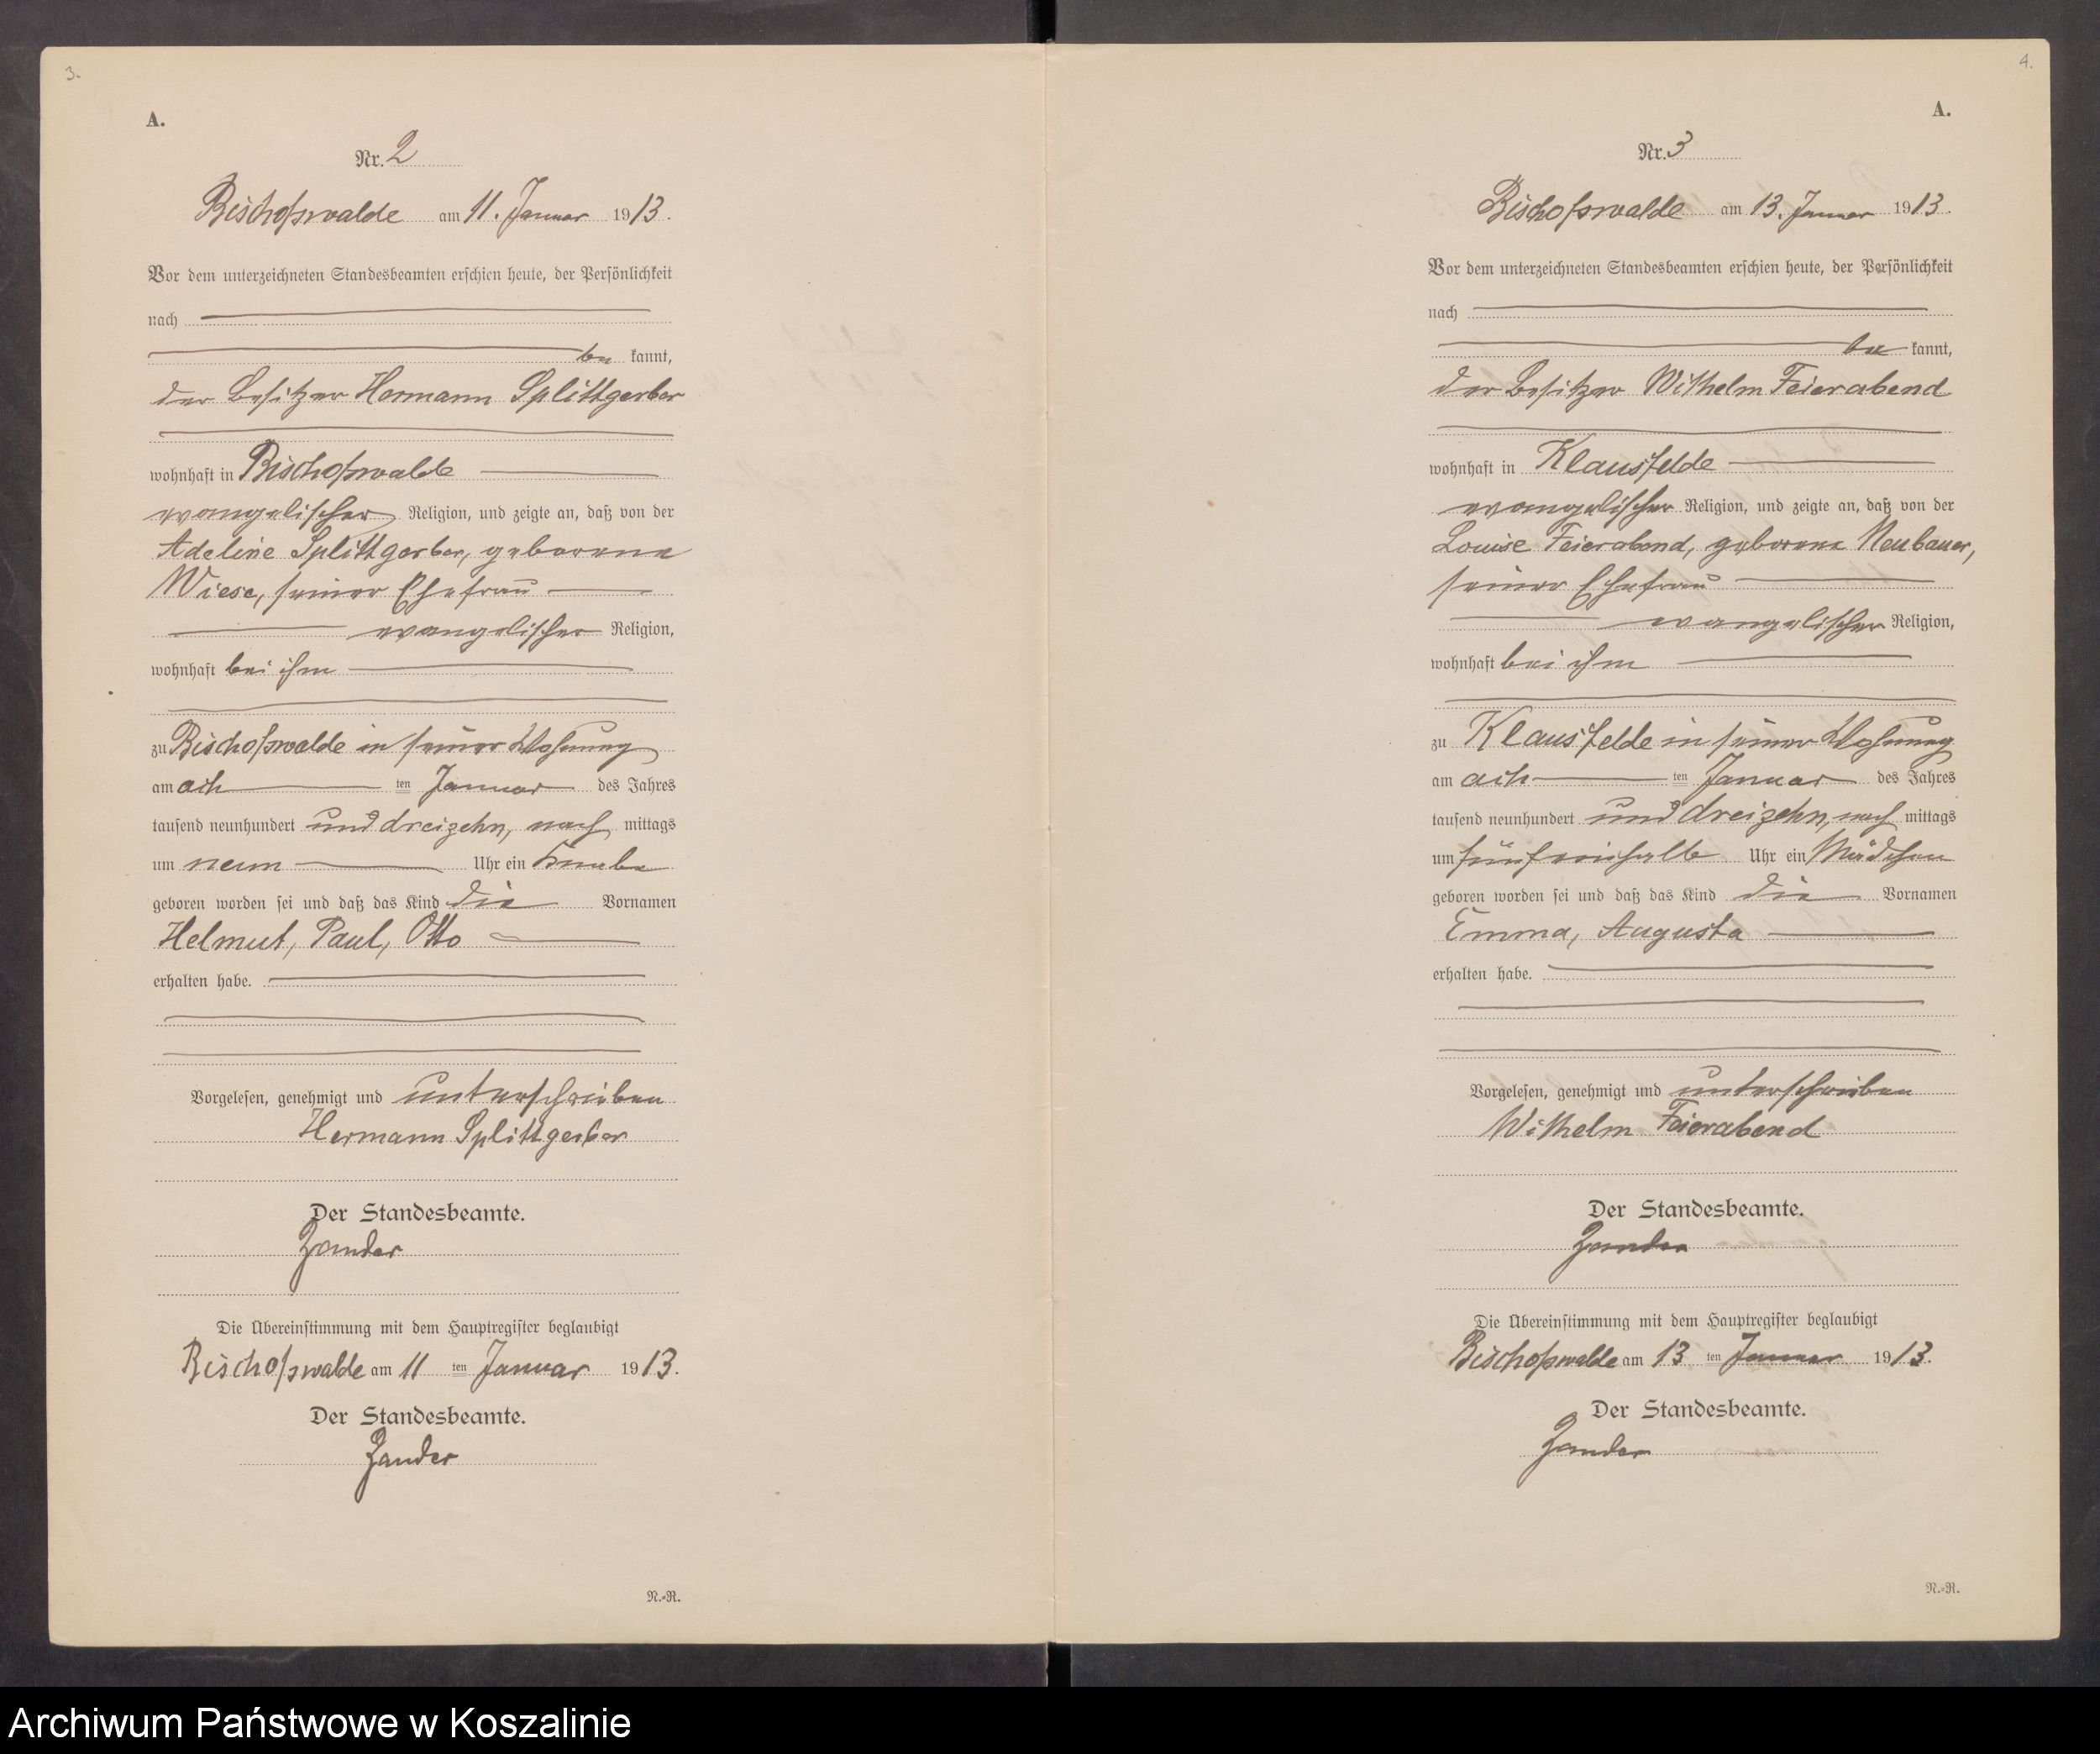 3.
A.
Nr. 2
Bischofswalde am 11. Januar 1913.
Vor dem unterzeichneten Standesbeamten erschien heute, der Persönlichkeit
nach
be kannt,
der Besitzer Hermann Splittgerber
wohnhaft in Bischofswalde
evangelischer Religion, und zeigte an, daß von der
Adeline Splittgerber, geborene
Wiese, seiner Ehefrau
evangelischer Religion,
wohnhaft bei ihm
zu Bischofswalde in seiner Wohnung
am ach ten Januar des Jahres
tausend neunhundert und dreizehn, nach mittags
um neun Uhr ein Knabe
geboren worden sei und daß das Kind die Vornamen
Helmut, Paul, Otto
erhalten habe.
Vorgelesen, genehmigt und unterschrieben
Hermann Splittgerber
Der Standesbeamte.
Zander
Die Übereinstimmung mit dem Hauptregister beglaubigt
Bischofswalde am 11 ten Januar 1913.
Der Standesbeamte.
Zander
N.-R.
4.
A.
Nr. 3
Bischofswalde am 13. Januar 1913.
Vor dem unterzeichneten Standesbeamten erschien heute, der Persönlichkeit
nach
be kannt,
der Besitzer Wilhelm Feierabend
wohnhaft in Klausfelde
evangelischer Religion, und zeigte an, daß von der
Louise Feierabend, geborene Neubauer,
seiner Ehefrau
evangelischer Religion,
wohnhaft bei ihm
zu Klausfelde in seiner Wohnung
am ach ten Januar des Jahres
tausend neunhundert und dreizehn, nach mittags
um fünfeinhalb Uhr ein Mädchen
geboren worden sei und daß das Kind die Vornamen
Emma, Augusta
erhalten habe.
Vorgelesen, genehmigt und unterschrieben
Wilhelm Feierabend
Der Standesbeamte.
Zander
Die Übereinstimmung mit dem Hauptregister beglaubigt
Bischofswalde am 13 ten Januar 1913.
Der Standesbeamte.
Zander
N.-R.
Archiwum Państwowe w Koszalinie